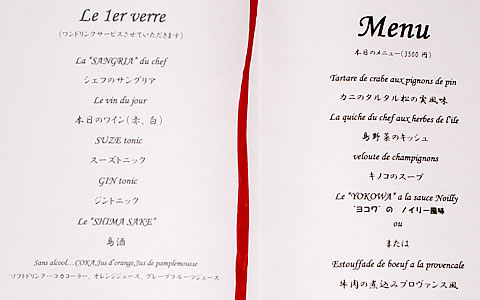 Le 1er verre
(ワンドリンクサービスさせていただきます)
La "SANGRIA" du chef
シェフのサングリア
Le vin du jour
本日のワイン(赤、白)
SUZE tonic
スーズトニック
GIN tonic
ジントニック
Le "SHIMA SAKE"
島酒
Sans alcool...COKA,Jus d'orange,Jus de pamplemousse
ソフトドリンク…コカコーラー, オレンジジュース, グレープフルーツジュース
Menu
本日のメニュー(3500 円)
Tartare de crabe aux pignons de pin
カニのタルタル松の実風味
La quiche du chef aux herbes de l'ile
島野菜のキッシュ
veloute de champignons
キノコのスープ
Le "YOKOWA" a la sauce Noilly
"ヨコワ" の ノイリー風味
ou
または
Estouffade de boeuf a la provencale
牛肉の煮込みプロヴァンス風